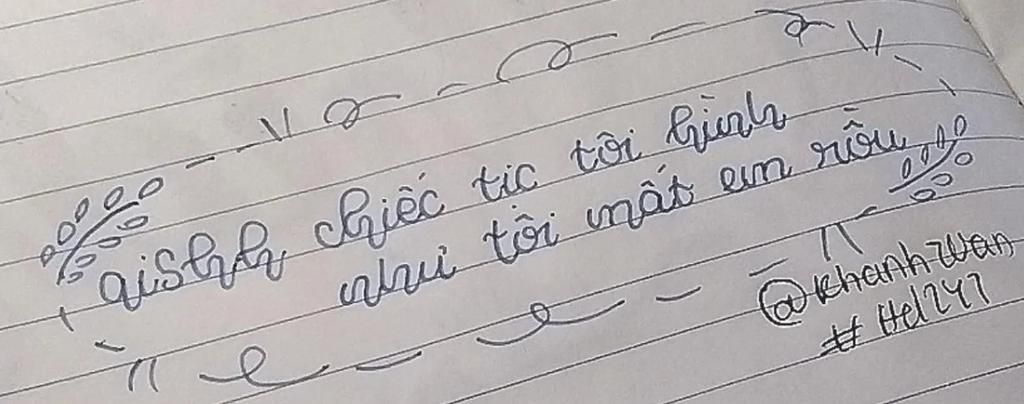 aishh chiếc tic tôi hình
như tôi mất em rồi
@khanh-wan